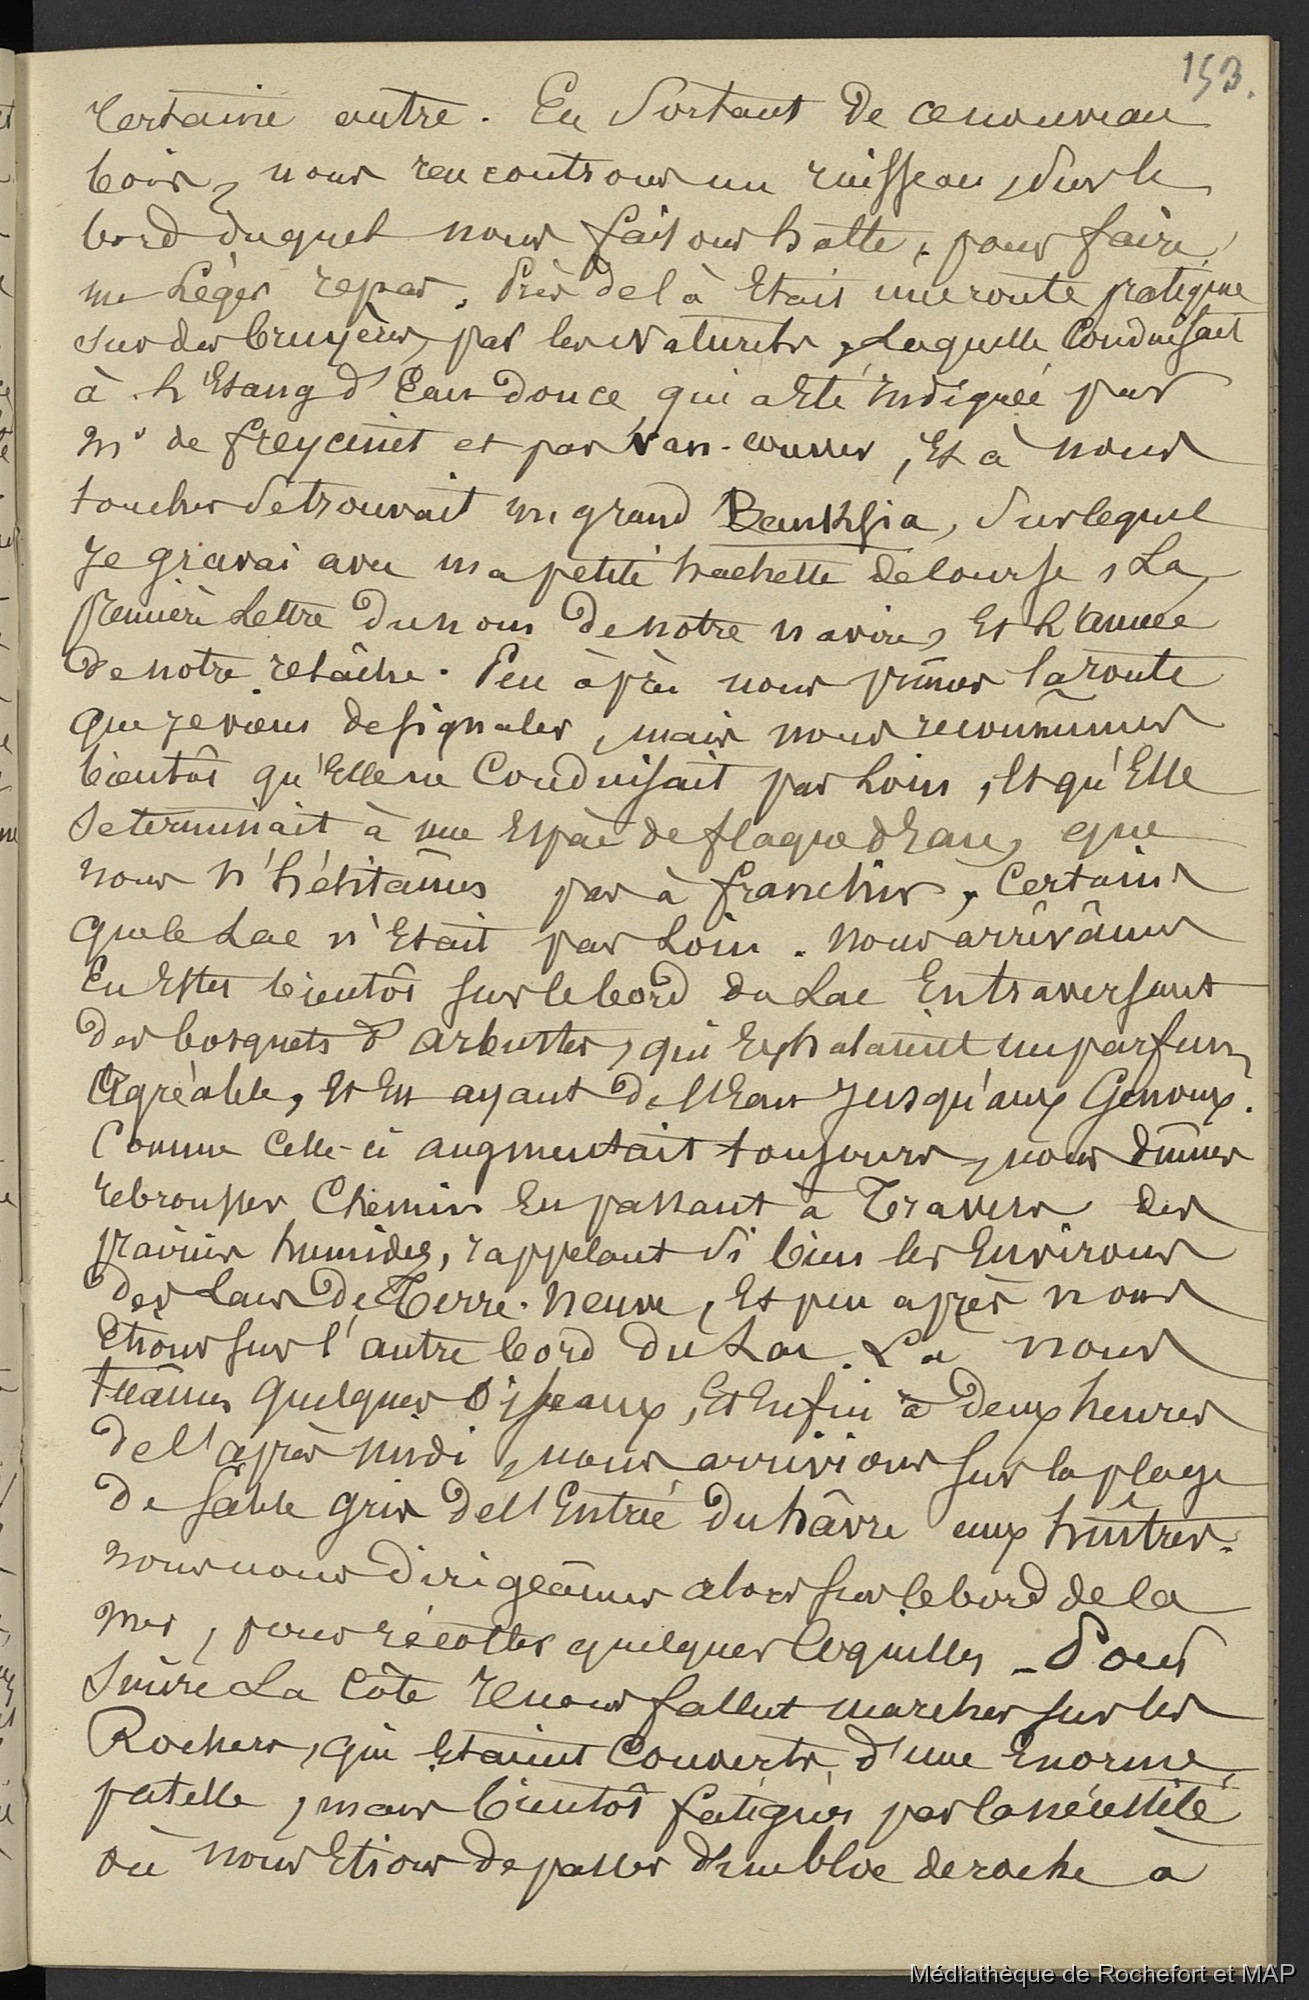 153.
certaine autre. En sortant de ce nouveau
bois, nous rencontrons un ruisseau, sur le
bord duquel nous faisons halte, pour faire
un léger repas. Près de là était une route pratiquée
sur des bruyères, par les naturels, laquelle conduisait
à l'étang d'eau douce qui a été indiquée par
Mr de freycinet et par Van-couver, et à nous
toucher se trouvait un grand Banksia, sur lequel
je gravai avec ma petite hachette de course, la
première lettre du nom de notre navire, et l'année
de notre relâche. Peu après nous prîmes la route
que je viens de signaler, mais nous reconnûmes
bientôt qu'elle ne conduisait pas loin, et qu'elle
se terminait à une espèce de flaque d'eau, que
nous n'hésitâmes pas à franchir, certains
que le Lac n'était pas loin. nous arrivâmes
en effet bientôt sur le bord du Lac en traversant
des bosquets d'arbustes, qui exhalaient un parfum
agréable, et en ayant de l'eau jusqu'aux genoux.
Comme celle-ci augmentait toujours, nous dûmes
rebrousser chemin en passant à travers des
prairies humides, rappelant si bien les environs
des Lacs de Terre-neuve, et peu après nous
étions sur l'autre bord du Lac. Là nous
tuâmes quelques oiseaux, et enfin à deux heures
de l'après midi, nous arrivions sur la plage
de sable gris de l'entrée du hâvre aux huîtres.
nous nous dirigeâmes alors sur le bord de la
mer, pour récolter quelques coquilles. Pour
suivre la côte il nous fallut marcher sur les
Rochers, qui étaient couverts d'une énorme
patelle, mais bientôt fatigués par la nécessité
où nous étions de passer d'un bloc de roche à
Médiathèque de Rochefort et MAP